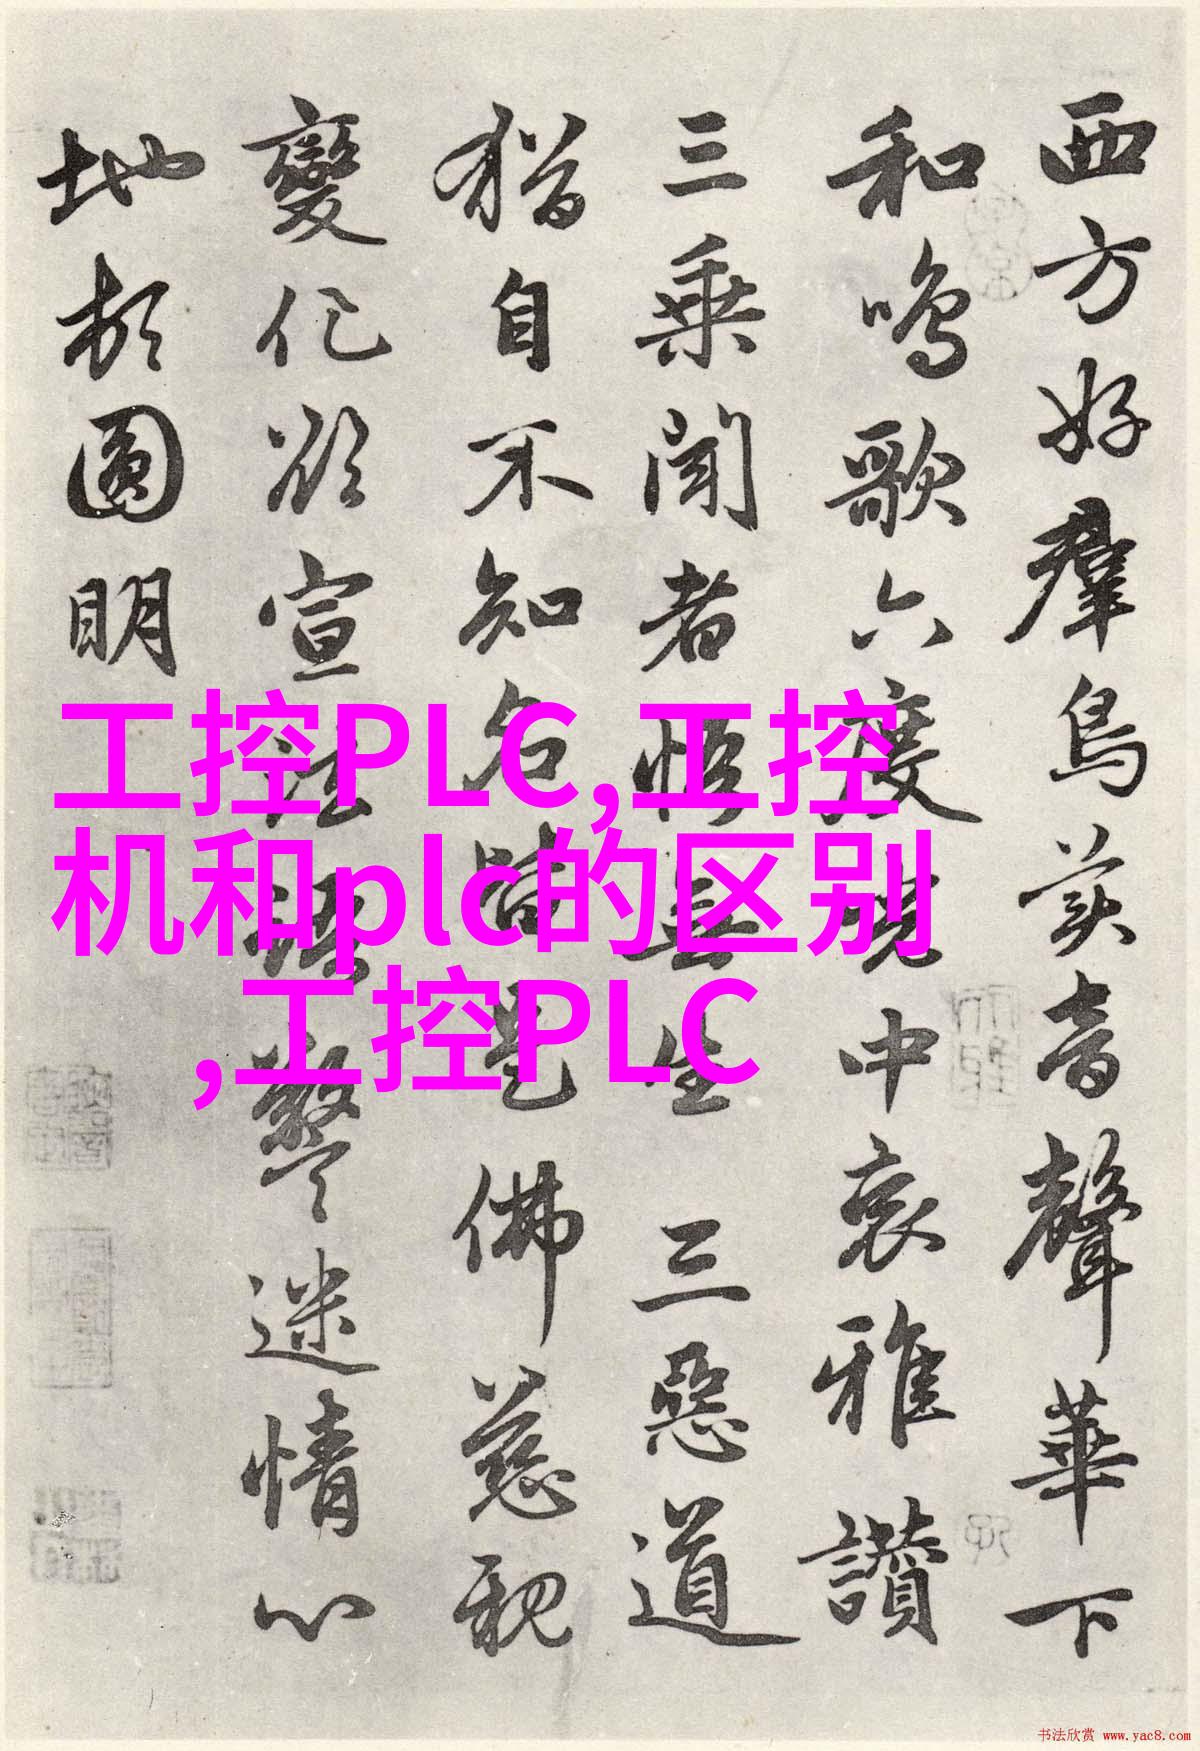 西方好羣鳥美音聲華下
和鳴歌六度現中哀雅讚
三乘聞者悟無生三惡道
猶自不知名皆是佛慈親
變化欲宣法語警迷情心
地頓圓明
工控PLC,工控
机和plc的区别
,工控PLC
书法欣赏 www.yac8.com